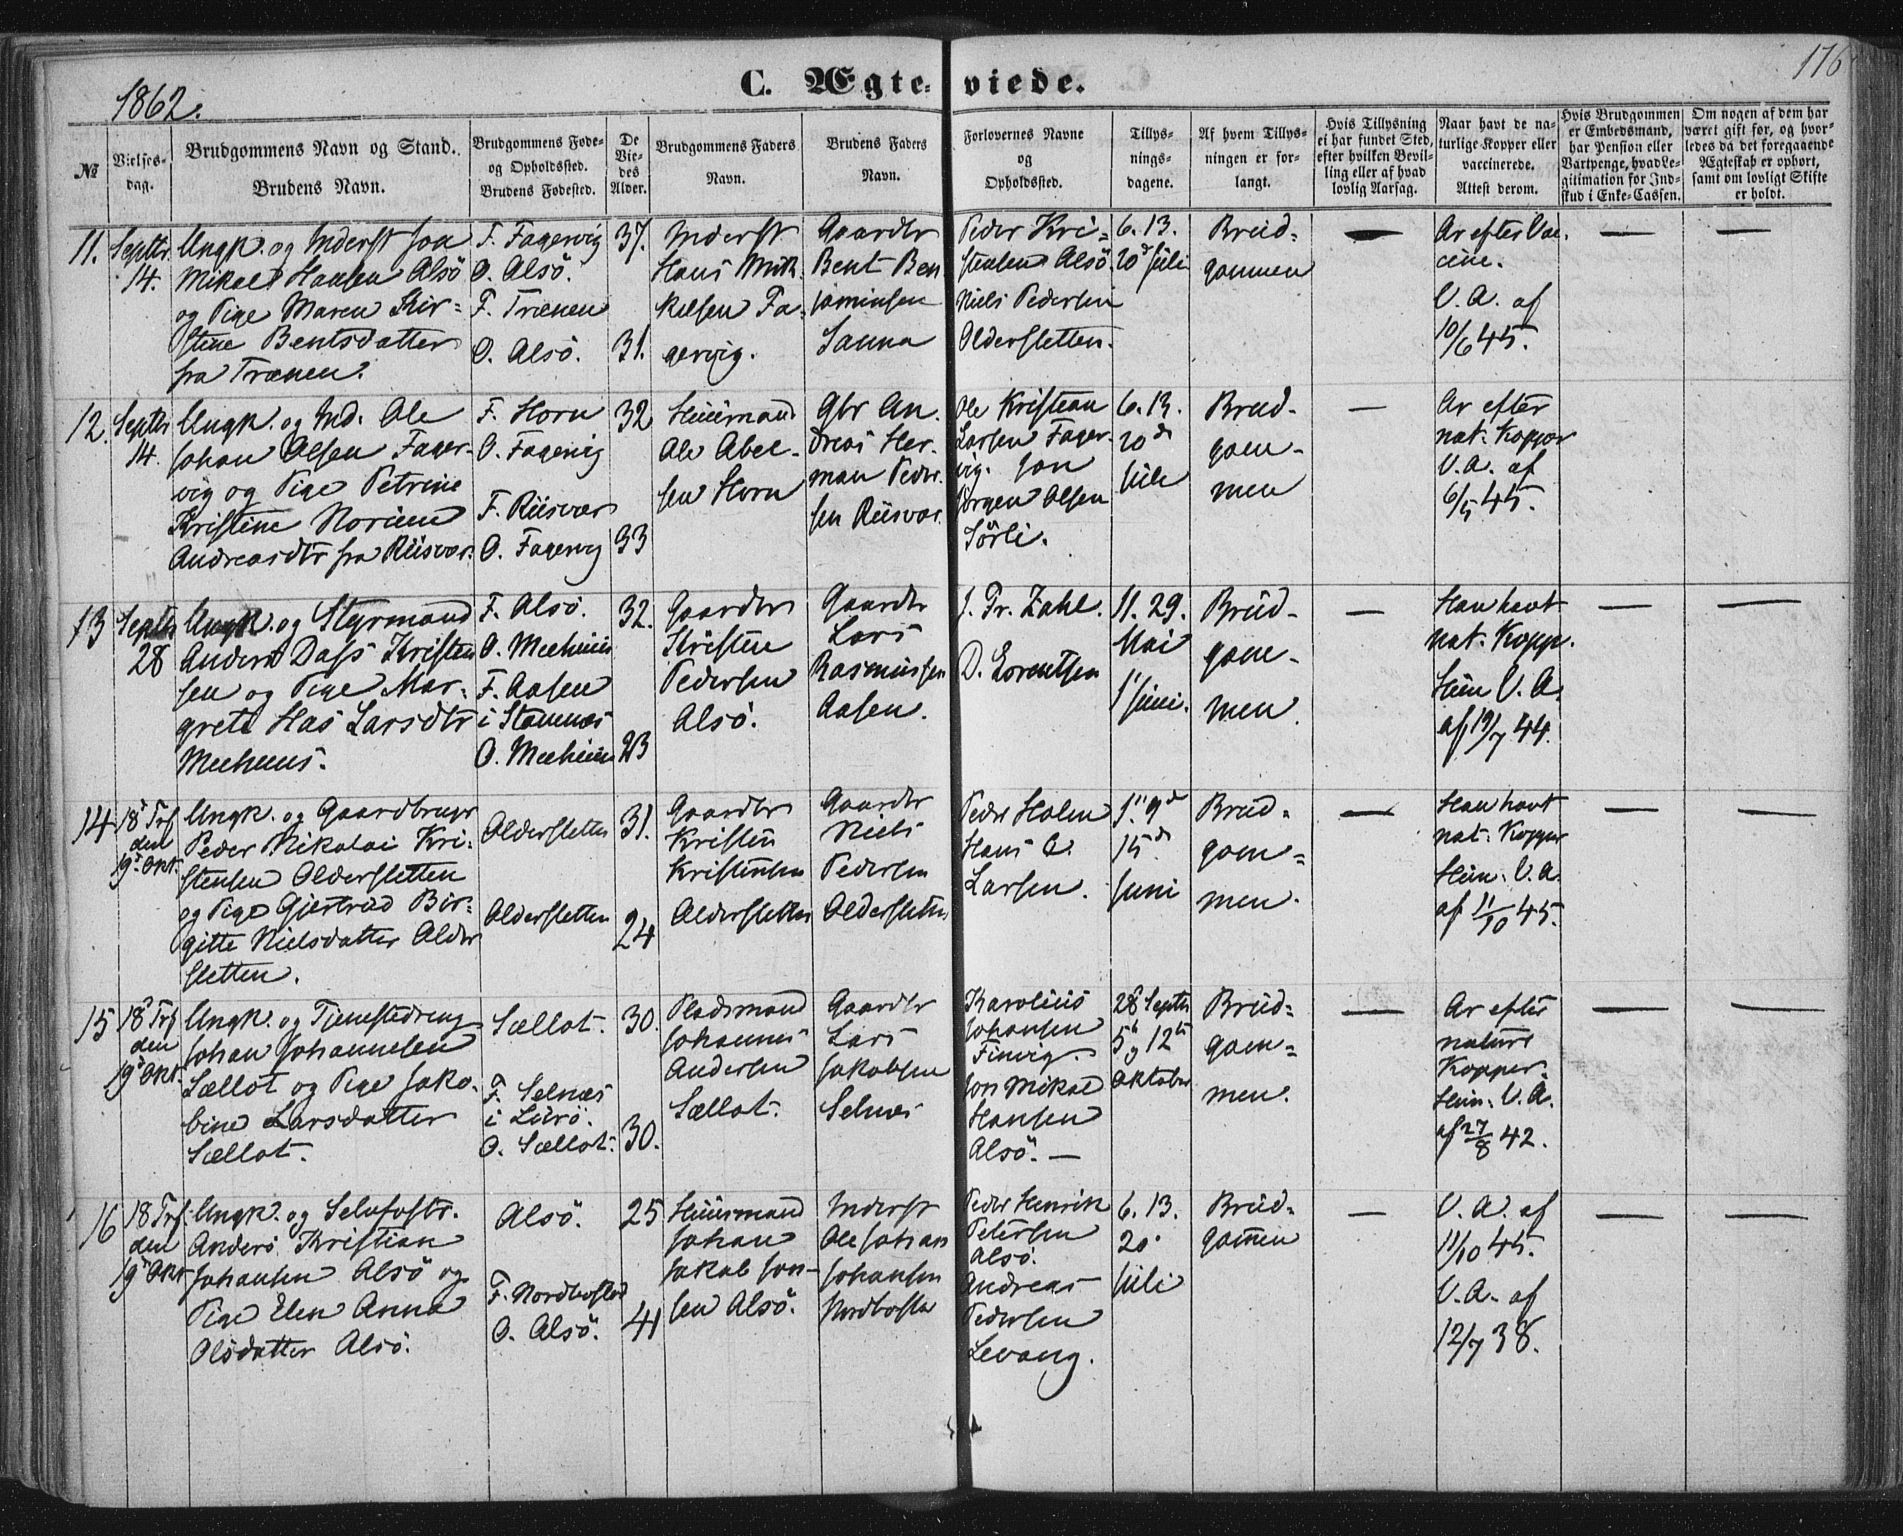 176
1862.
C. Ægte- viede.
№
Vielses-
dag.
Brudgommens Navn og Stand.
Brudens Navn.
Brudgommens Føde-
og Opholdssted.
Brudens Fødested.
De
Vie-
des
Alder.
Brudgommens Faders
Navn.
Brudens Faders
Navn.
Forlovernes Navne
og
Opholdssted.
Tillys-
nings-
dagene.
Af hvem Tillys-
ningen er for-
langt.
Hvis Tillysning
ei har fundet Sted,
efter hvilken Bevil-
ling eller af hvad
lovlig Aarsag.
Naar havt de na-
turlige Kopper eller
vaccinerede.
Attest derom.
Hvis Brudgommen
er Embedsmand,
har Pension eller
Vartpenge, hvad Le-
gitimation for Ind-
skud i Enke-Cassen.
Om nogen af dem har
været gift før, og hvor-
ledes da det foregaaende
Ægteskab er ophørt,
samt om lovligt Skifte
er holdt.
11.
Septbr
14.
Ungk. og Inderst Jon
Mikal Hansen Alsö
og Pige Maren Kir-
stine Bentsdatter
fra Trænen.
F. Fagervig
O. Alsö.
F. Trænen
O. Alsö.
37.
31.
Inderst
Hans Mik-
kelsen Fa-
gervig.
Gaardbr
Bent Ben
jaminsen
Sanna
Peder Kri-
stensen Alsö.
Niels Pedersen
Aldersletten.
6. 13.
20d Juli
Brud-
gommen
—
Ar efter Vac-
cine.
V. A. af
10/6 45.
—
—
12.
Septbr
14.
Ungk. og Ind. Ole
Johan Olsen Fager-
vig og Pige Petrine
Kristine Norine
Andreasdtr fra Riisvær.
F. Horn
O. Fagervig
F. Riisvær
O. Fagervig
32
33
Huusmand
Ole Abel-
sen Horn
Gbr An-
dreas Her-
man Peder-
sen Riisvær.
Ole Kristian
Larsen Fager-
vig. Jon
Jørgen Olsen
Sörli.
6. 13.
20d
Juli
Brud-
gom-
men
—
Ar efter
nat. Kopper
V. A. af
6/5 45.
13
Septbr
28
Ungk. og Styrmand
Anders Dass Kristen
sen og Pige Mar-
grete Has Larsdtr
Meehuus.
F. Alsö.
O. Meehuus
F. Aasen
i Stamnæs
O. Meehuus
32.
23
Gaardbr
Kristen
Pedersen
Alsö.
Gaardbr
Lars
Rasmussen
Aasen.
J. Pr. Zahl.
D. Lorentsen
11. 29.
Mai
1 Juni.
Brud-
gom-
men.
—
Han havt
nat. Kopp.
Hun V. A.
af 19/7 44.
—
—
14
18d Trf
den
19d Okt.
Ungk. og Gaardbruger
Peder Nikolai Kri-
stensen Aldersletten
og Pige Gjertrud Bir-
gitte Nielsdatter Alder
sletten.
Aldersletten
Aldersletten
31.
24
Gaardbr
Kristen
Kristensen
Aldersletten
Gaardbr
Niels
Pedersen
Aldersletten
Peder Holm
Hans C.
Larsen.
1. 9d
15d
Juni
Brud-
gom-
men.
—
Han havt
nat. Kopper
Hun. V. A.
af 11/10 45.
—
—
15
18d Trf
den
19d Okt.
Ungk. og Tjenestedreng
Johan Johannesen
Sællot og Pige Jako-
bine Larsdatter
Sællot.
Sællot.
F. Selnæs
i Lurö.
O. Sællot.
30.
30.
Pladsmand
Johannes
Andersen
Sællot.
Gaardbr
Lars
Jakobsen
Selnæs
Karolius
Johansen
Finvig.
Jon Mikal
Hansen
Alsö. —
28 Septbr
5 og 12te
Oktober
Brud-
gom-
men.
—
Ar efter
naturl
Kopper.
Hun. V. A.
af 27/8 42.
—
—
16
18 Trf.
den
19d Okt
Ungk. og Selvfostr.
Anders Kristian
Johansen Alsö og
Pige Elen Anna
Olsdatter Alsö.
Alsö.
F. Nordbostad
O. Alsö.
25
41
Huusmand
Johan
Jakob Jon-
sen Alsö.
Inderst
Ole Johan
Johansen
Nordbosta
Peder Henrik
Petersen
Alsö.
Andreas
Pedersen
Levang.
6. 13.
20.
Juli
Brud-
gommen
—
V. A. af
11/10 45.
V. A. af
12/7 38.
—
—